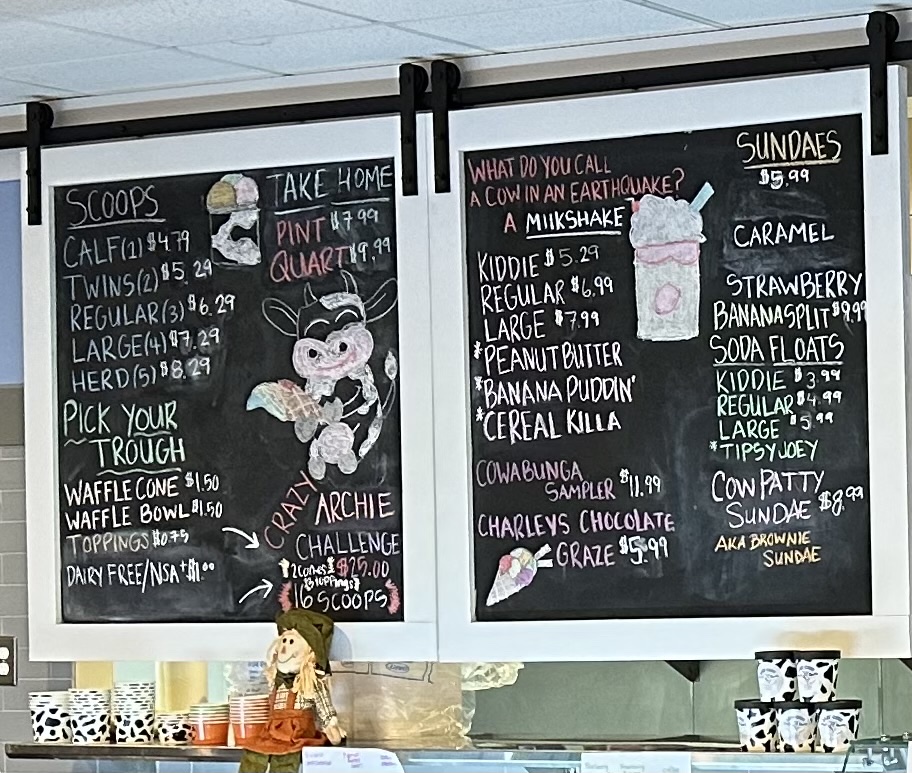 SCOOPS
CALF(1) $4.79
TWINS(2) $5.29
REGULAR(3) $6.29
LARGE(4) $7.29
HERD(5) $8.29
PICK YOUR
TROUGH
WAFFLE CONE $1.50
WAFFLE BOWL $1.50
TOPPINGS $0.75
DAIRY FREE/NSA +$1.00
TAKE HOME
PINT $7.99
QUART $9.99
CRAZY ARCHIE
CHALLENGE
2 CONES $25.00
3 TOPPINGS
16 SCOOPS
WHAT DO YOU CALL
A COW IN AN EARTHQUAKE?
A MILKSHAKE
KIDDIE $5.29
REGULAR $6.99
LARGE $7.99
*PEANUT BUTTER
*BANANA PUDDIN'
*CEREAL KILLA
COWABUNGA
SAMPLER $11.99
CHARLEYS CHOCOLATE
GRAZE $5.99
SUNDAES
$5.99
CARAMEL
STRAWBERRY
BANANA SPLIT $9.99
SODA FLOATS
KIDDIE $3.99
REGULAR $4.99
LARGE $5.99
*TIPSY JOEY
COW PATTY
SUNDAE $8.99
AKA BROWNIE
SUNDAE